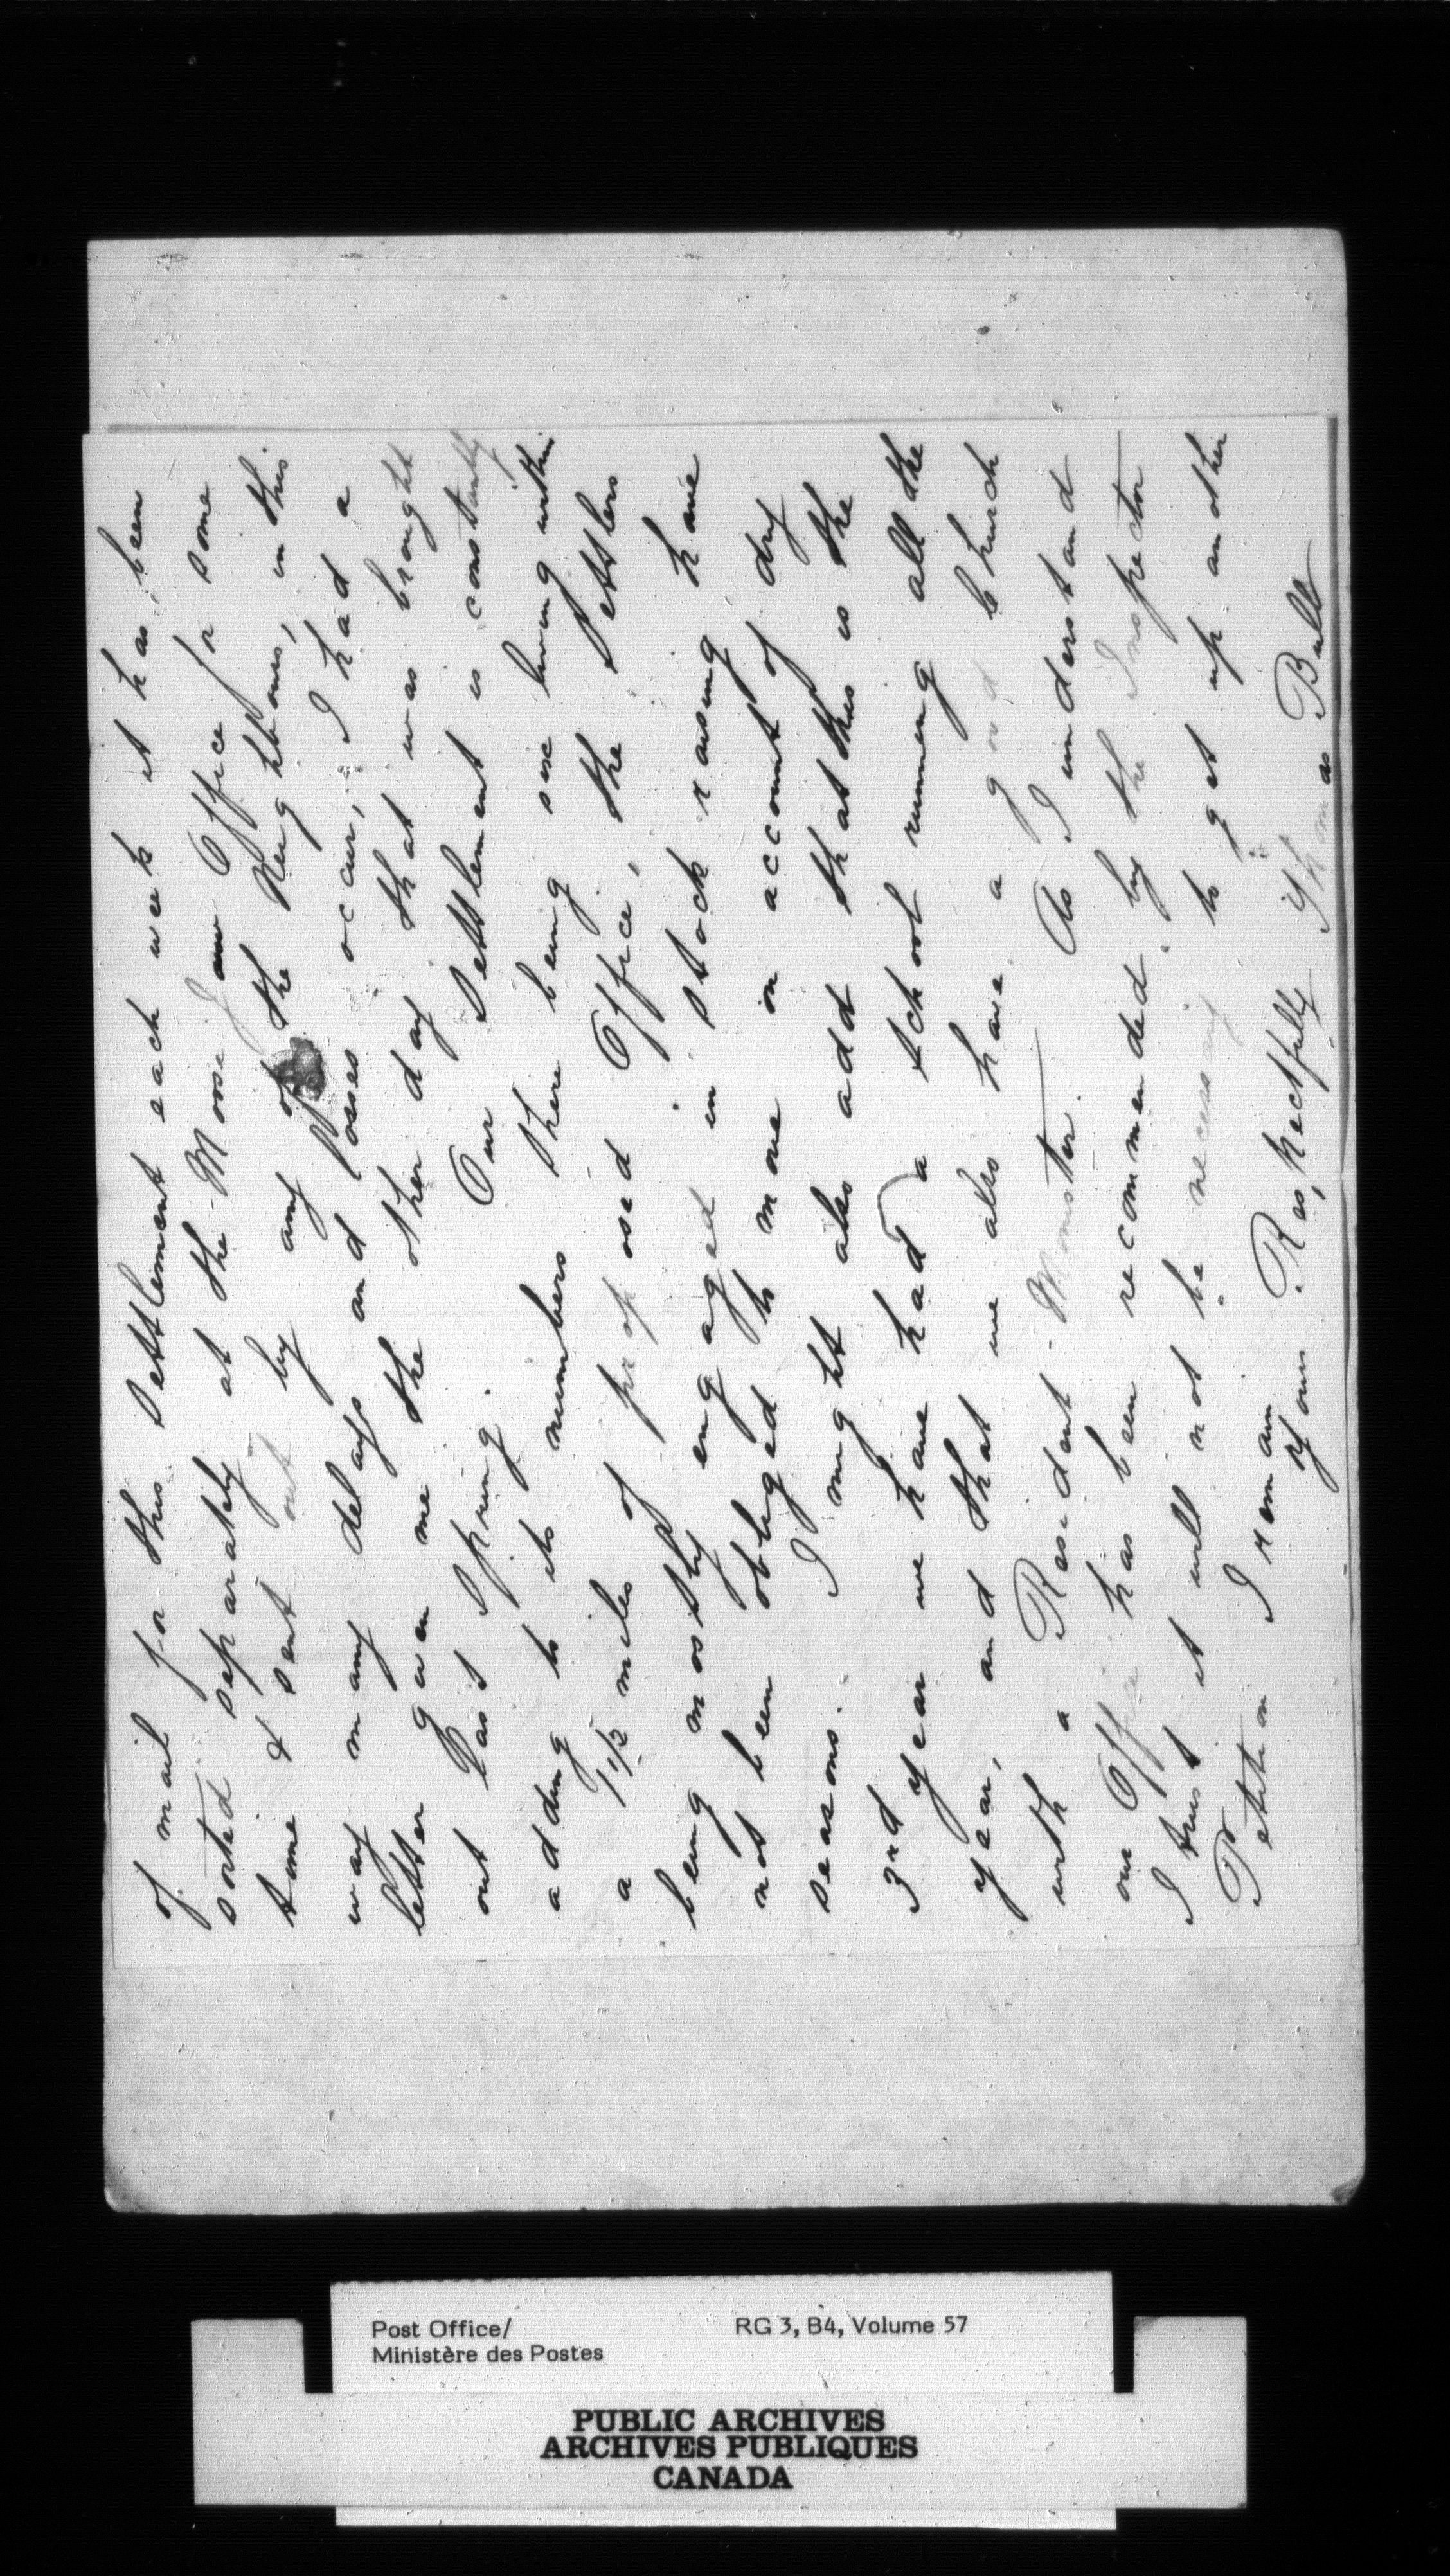 of mail for this settlement each week it has been
sorted separately at the Moose Jaw Office for some
time & sent out by any of the Neighbours, in this
way many delays and losses occur, I had a
letter given me the other day that was brought
out last Spring. Our settlement is constantly
adding to its numbers there being six living within
a 1 1/2 miles of proposed Office, the settlers
being mostly engaged in stock raising have
not been obliged to move on account of dry
seasons. I might also add that this is the
3rd year we have had a school running all the
year, and that we also have a good Church
with a Resident Minister. As I understand
our Office has been recommended by the Inspector
I trust it will not be necessary to get up another
Petition I remain
Yours Respectfully Thomas Bull
Post Office/ RG 3, B4, Volume 57
Ministère des Postes
PUBLIC ARCHIVES
ARCHIVES PUBLIQUES
CANADA